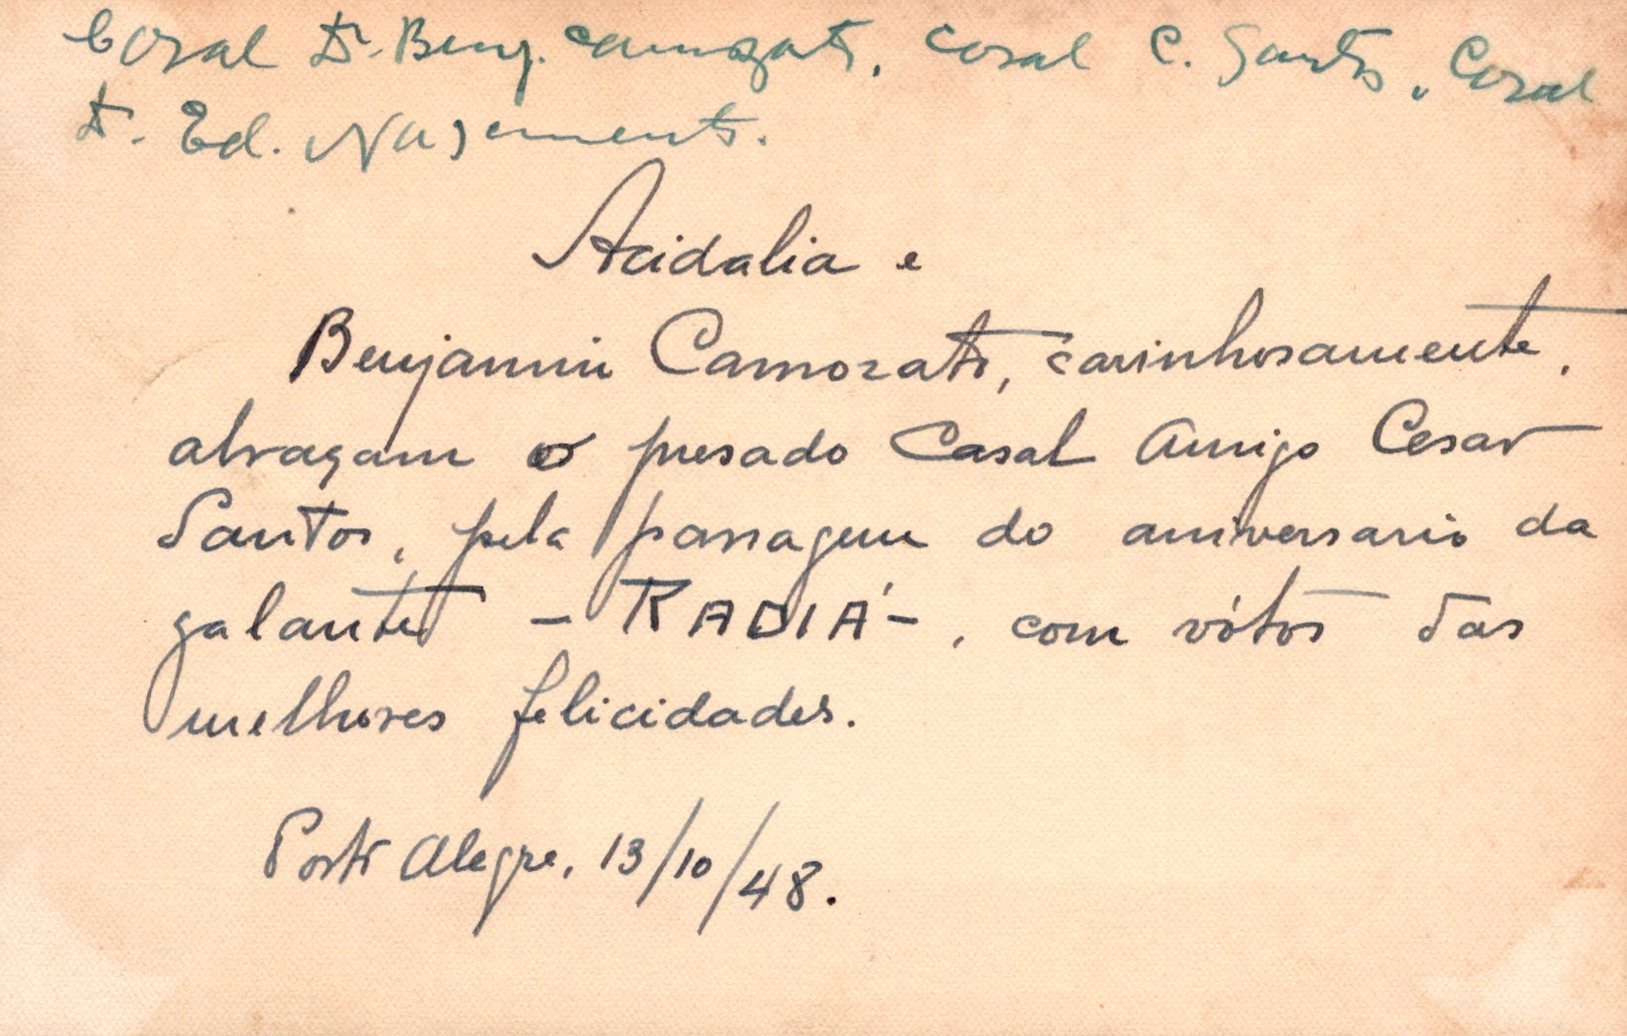 Casal Dr. Benj. Camozato, Casal C. Santos, Casal
Dr. Ed. Nascimento.
Acidalia e
Benjamin Camozato, carinhosamente,
abraçam o presado Casal Amigo Cesar
Santos, pela passagem do aniversario da
galante - RADIÁ-, com vótos das
melhores felicidades.
Porto Alegre, 13/10/48.